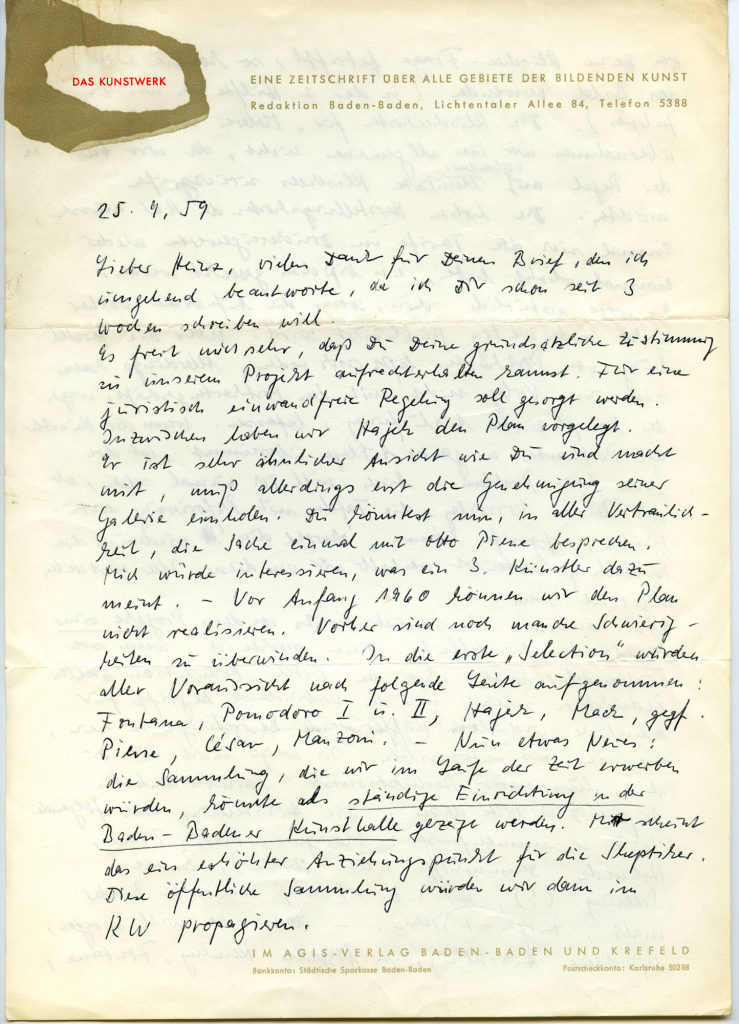 DAS KUNSTWERK
EINE ZEITSCHRIFT ÜBER ALLE GEBIETE DER BILDENDEN KUNST
Redaktion Baden-Baden, Lichtentaler Allee 84, Telefon 5388
25. 9. 59
Lieber Heinz, vielen Dank für Deinen Brief, den ich
umgehend beantworte, da ich Dir schon seit 3
Wochen schreiben will.
Es freut mich sehr, daß Du Deine grundsätzliche Zustimmung
zu unserem Projekt aufrechterhalten kannst. Für eine
juristisch einwandfreie Regelung soll gesorgt werden.
Inzwischen haben wir Hajek den Plan vorgelegt.
Er ist sehr ähnlicher Ansicht wie Du und macht
mit, muß allerdings erst die Genehmigung seiner
Galerie einholen. Du könntest nun, in aller Vertraulich-
keit, die Sache einmal mit Otto Piene besprechen.
Mich würde interessieren, was ein 3. Künstler dazu
meint. – Vor Anfang 1960 können wir den Plan
nicht realisieren. Vorher sind noch manche Schwierig-
keiten zu überwinden. In die erste „Selection" würden
aller Voraussicht nach folgende Leute aufgenommen:
Fontana, Pomodoro I u. II, Hajek, Mack, ggf.
Piene, César, Manzoni. – Nun etwas Neues:
die Sammlung, die wir im Laufe der Zeit erwerben
würden, könnte als ständige Einrichtung in der
Baden-Badener Kunsthalle gezeigt werden. Mir scheint
das ein erhöhter Anziehungspunkt für die Skeptiker.
Diese öffentliche Sammlung würden wir dann im
KW propagieren.
IM AGIS-VERLAG BADEN-BADEN UND KREFELD
Bankkonto: Städtische Sparkasse Baden-Baden
Postscheckkonto: Karlsruhe 50288